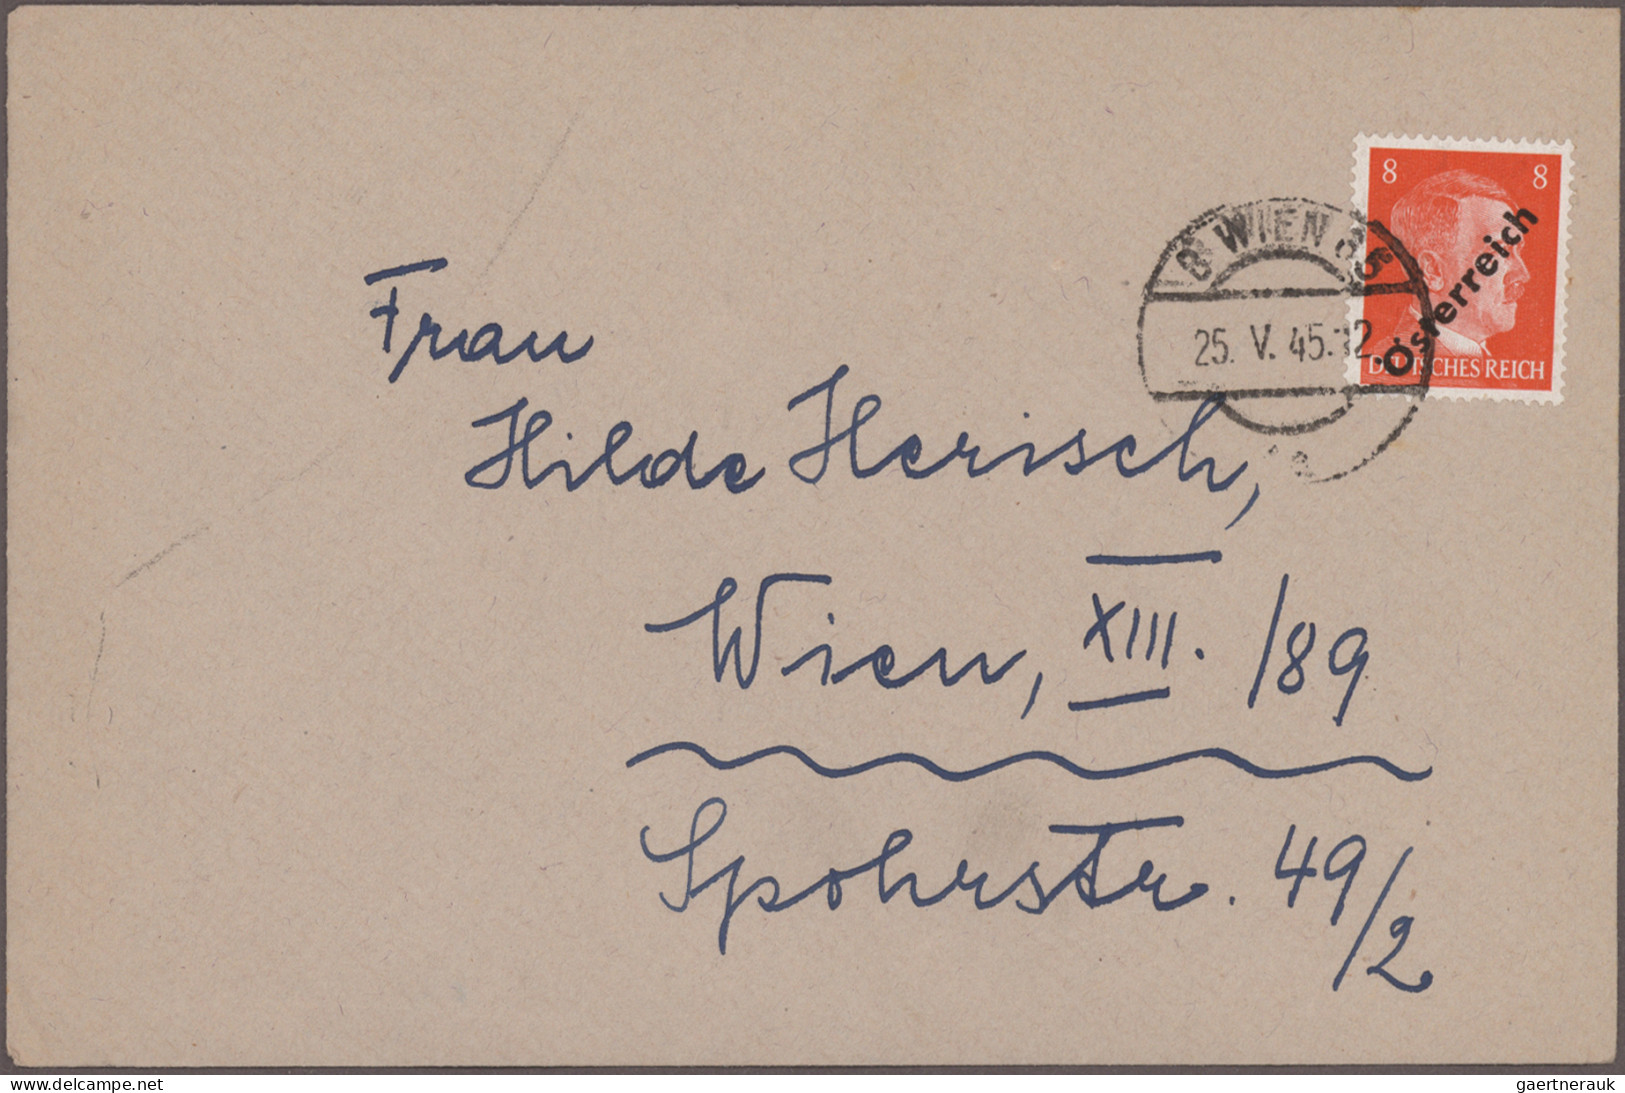 8 8
Österreich
DEUTSCHES REICH
WIEN
25. V. 45.12
Frau
Hilde Herisch,
Wien, XIII. /89
Spohrstr. 49/2
delcampe.net
gaertnerauk